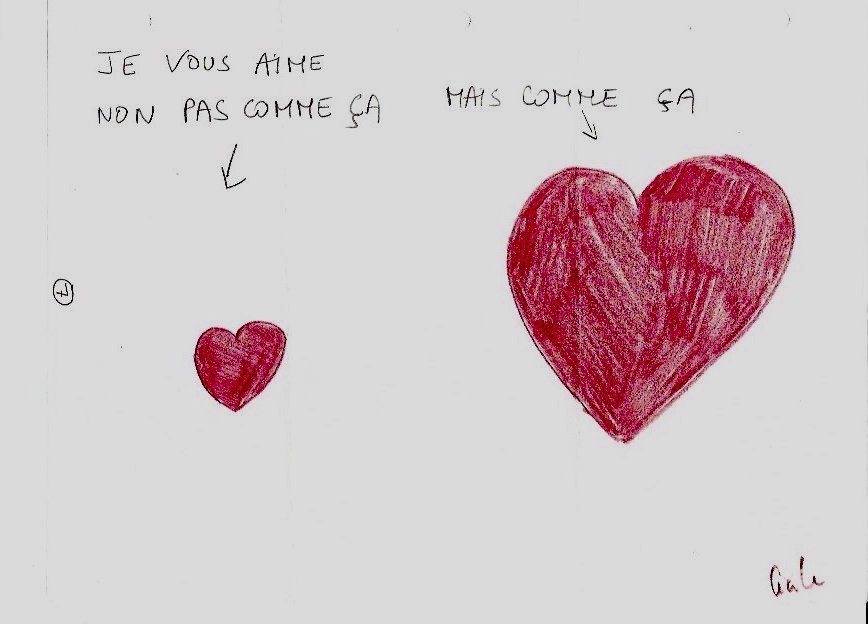 JE VOUS AIME
NON PAS COMME ÇA
MAIS COMME ÇA
7